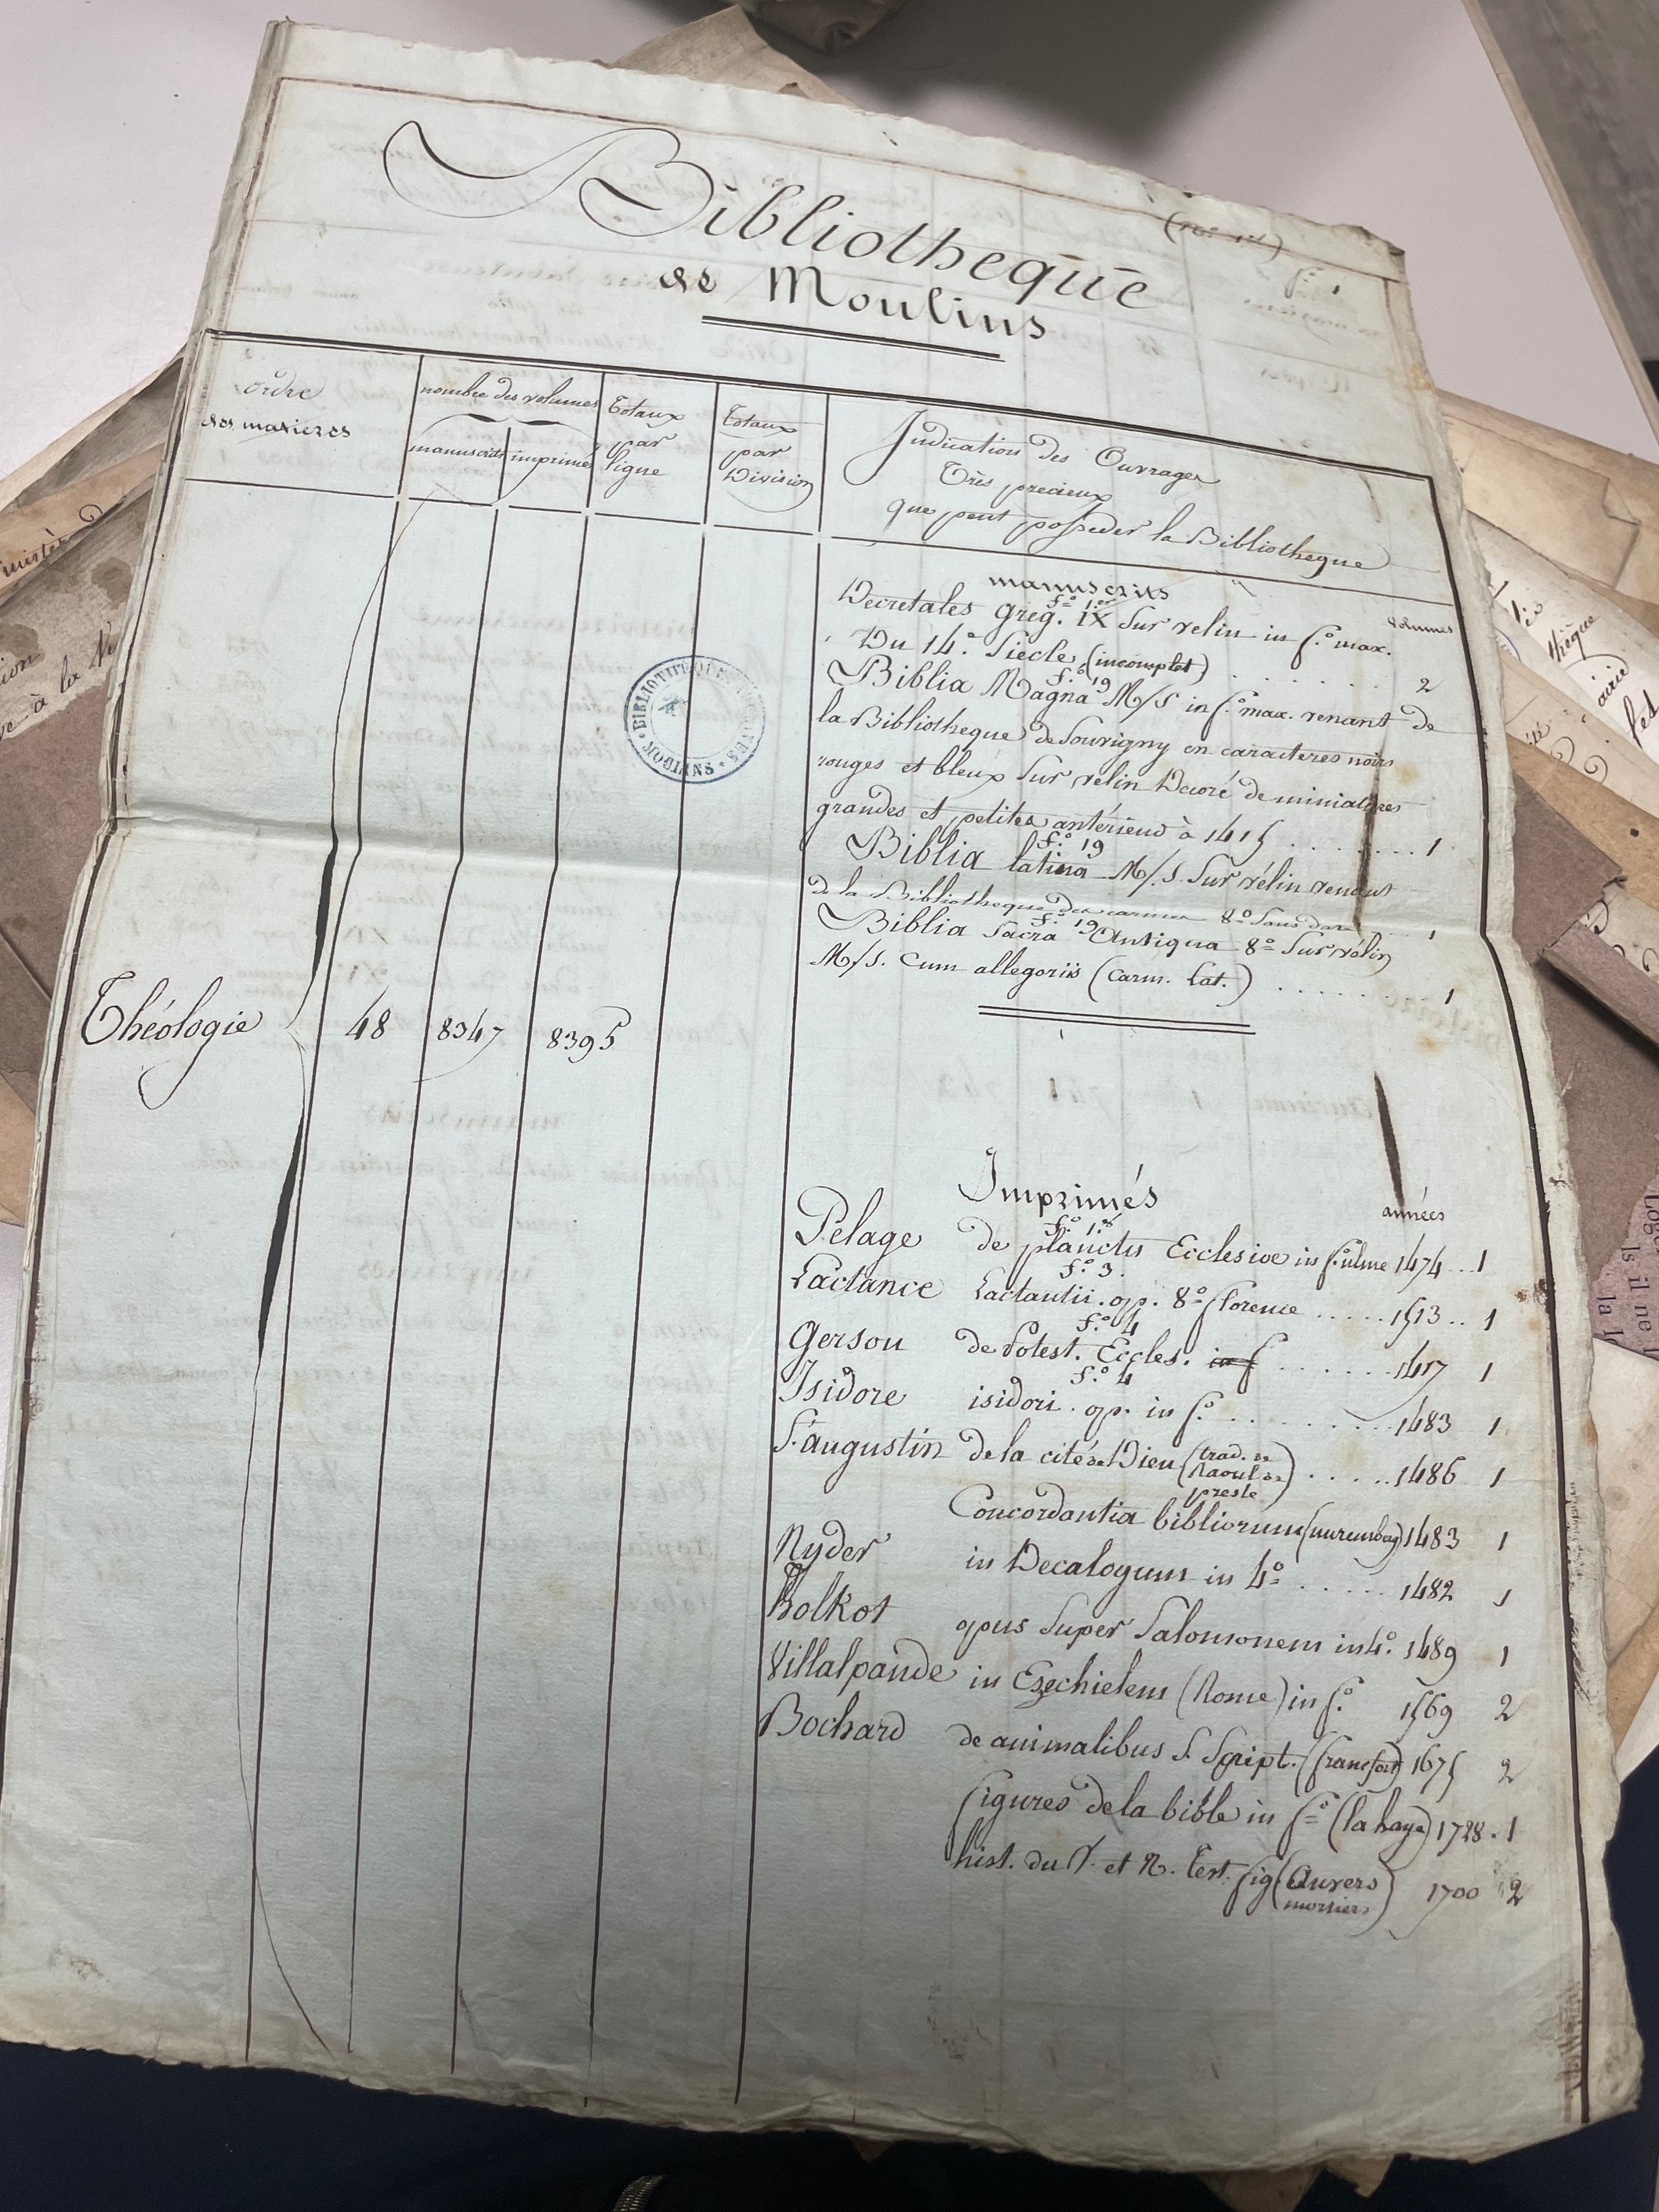 Bibliotheque
de Moulins
f.o 1
ordre
des matieres
nombre des volumes
manuscrits
imprimés
Totaux
par
ligne
Totaux
par
Division
Indication des Ouvrages
Très precieux
que peut posseder la Bibliotheque
manuscrits
volumes
f.o 1.er
Decretales greg. IX Sur velin in f.o max.
Du 14.e Siecle (incomplet) . . . . . . . 2
f.o 19
Biblia Magna M/S in f.o max. venant de
la Bibliotheque de Souvigny en caracteres noirs
rouges et bleux Sur vélin Décoré de miniatures
grandes et petites antérieur à 1415 . . . . . . . 1
f.o 19
Biblia latina M/S. Sur vélin venant
de la Bibliotheque des carmes 8o Sans date . . . 1
f.o 19
Biblia Sacra Antiqua 8o Sur vélin
M/S. Cum allegoriis (Carm. Lat.) . . . . . . . . 1
BIBLIOTHEQUE MOULINS
Théologie 48 8347 8395
Imprimés
années
f.o 1.er
Pelage de planctu Ecclesioe in f.o ulme 1474 . . . 1
f.o 3.
Lactance Lactantii. op. 8o florence . . . . . 1513 . . 1
f.o 4
Gerson de Potest. Eccles. in f . . . . . . 1417 1
f.o 4
Isidore isidori. op. in f.o . . . . . . . . 1483 1
S. augustin de la cité de Dieu (trad. de Raoul de presle) . . . . . 1486 1
Concordantia bibliorum (nuremberg) 1483 1
Nyder in Decalogum in 4o . . . . . 1482 1
holkot opus Super Salomonem in 4.o 1489 1
Villalpande in Ezechielem (Rome) in f.o 1569 2
Bochard de animalibus S. Script. (francfort) 1675 2
figures de la bible in f.o (la haye) 1728 . 1
hist. du V. et N. Test. fig (Anvers mortier) 1700 2